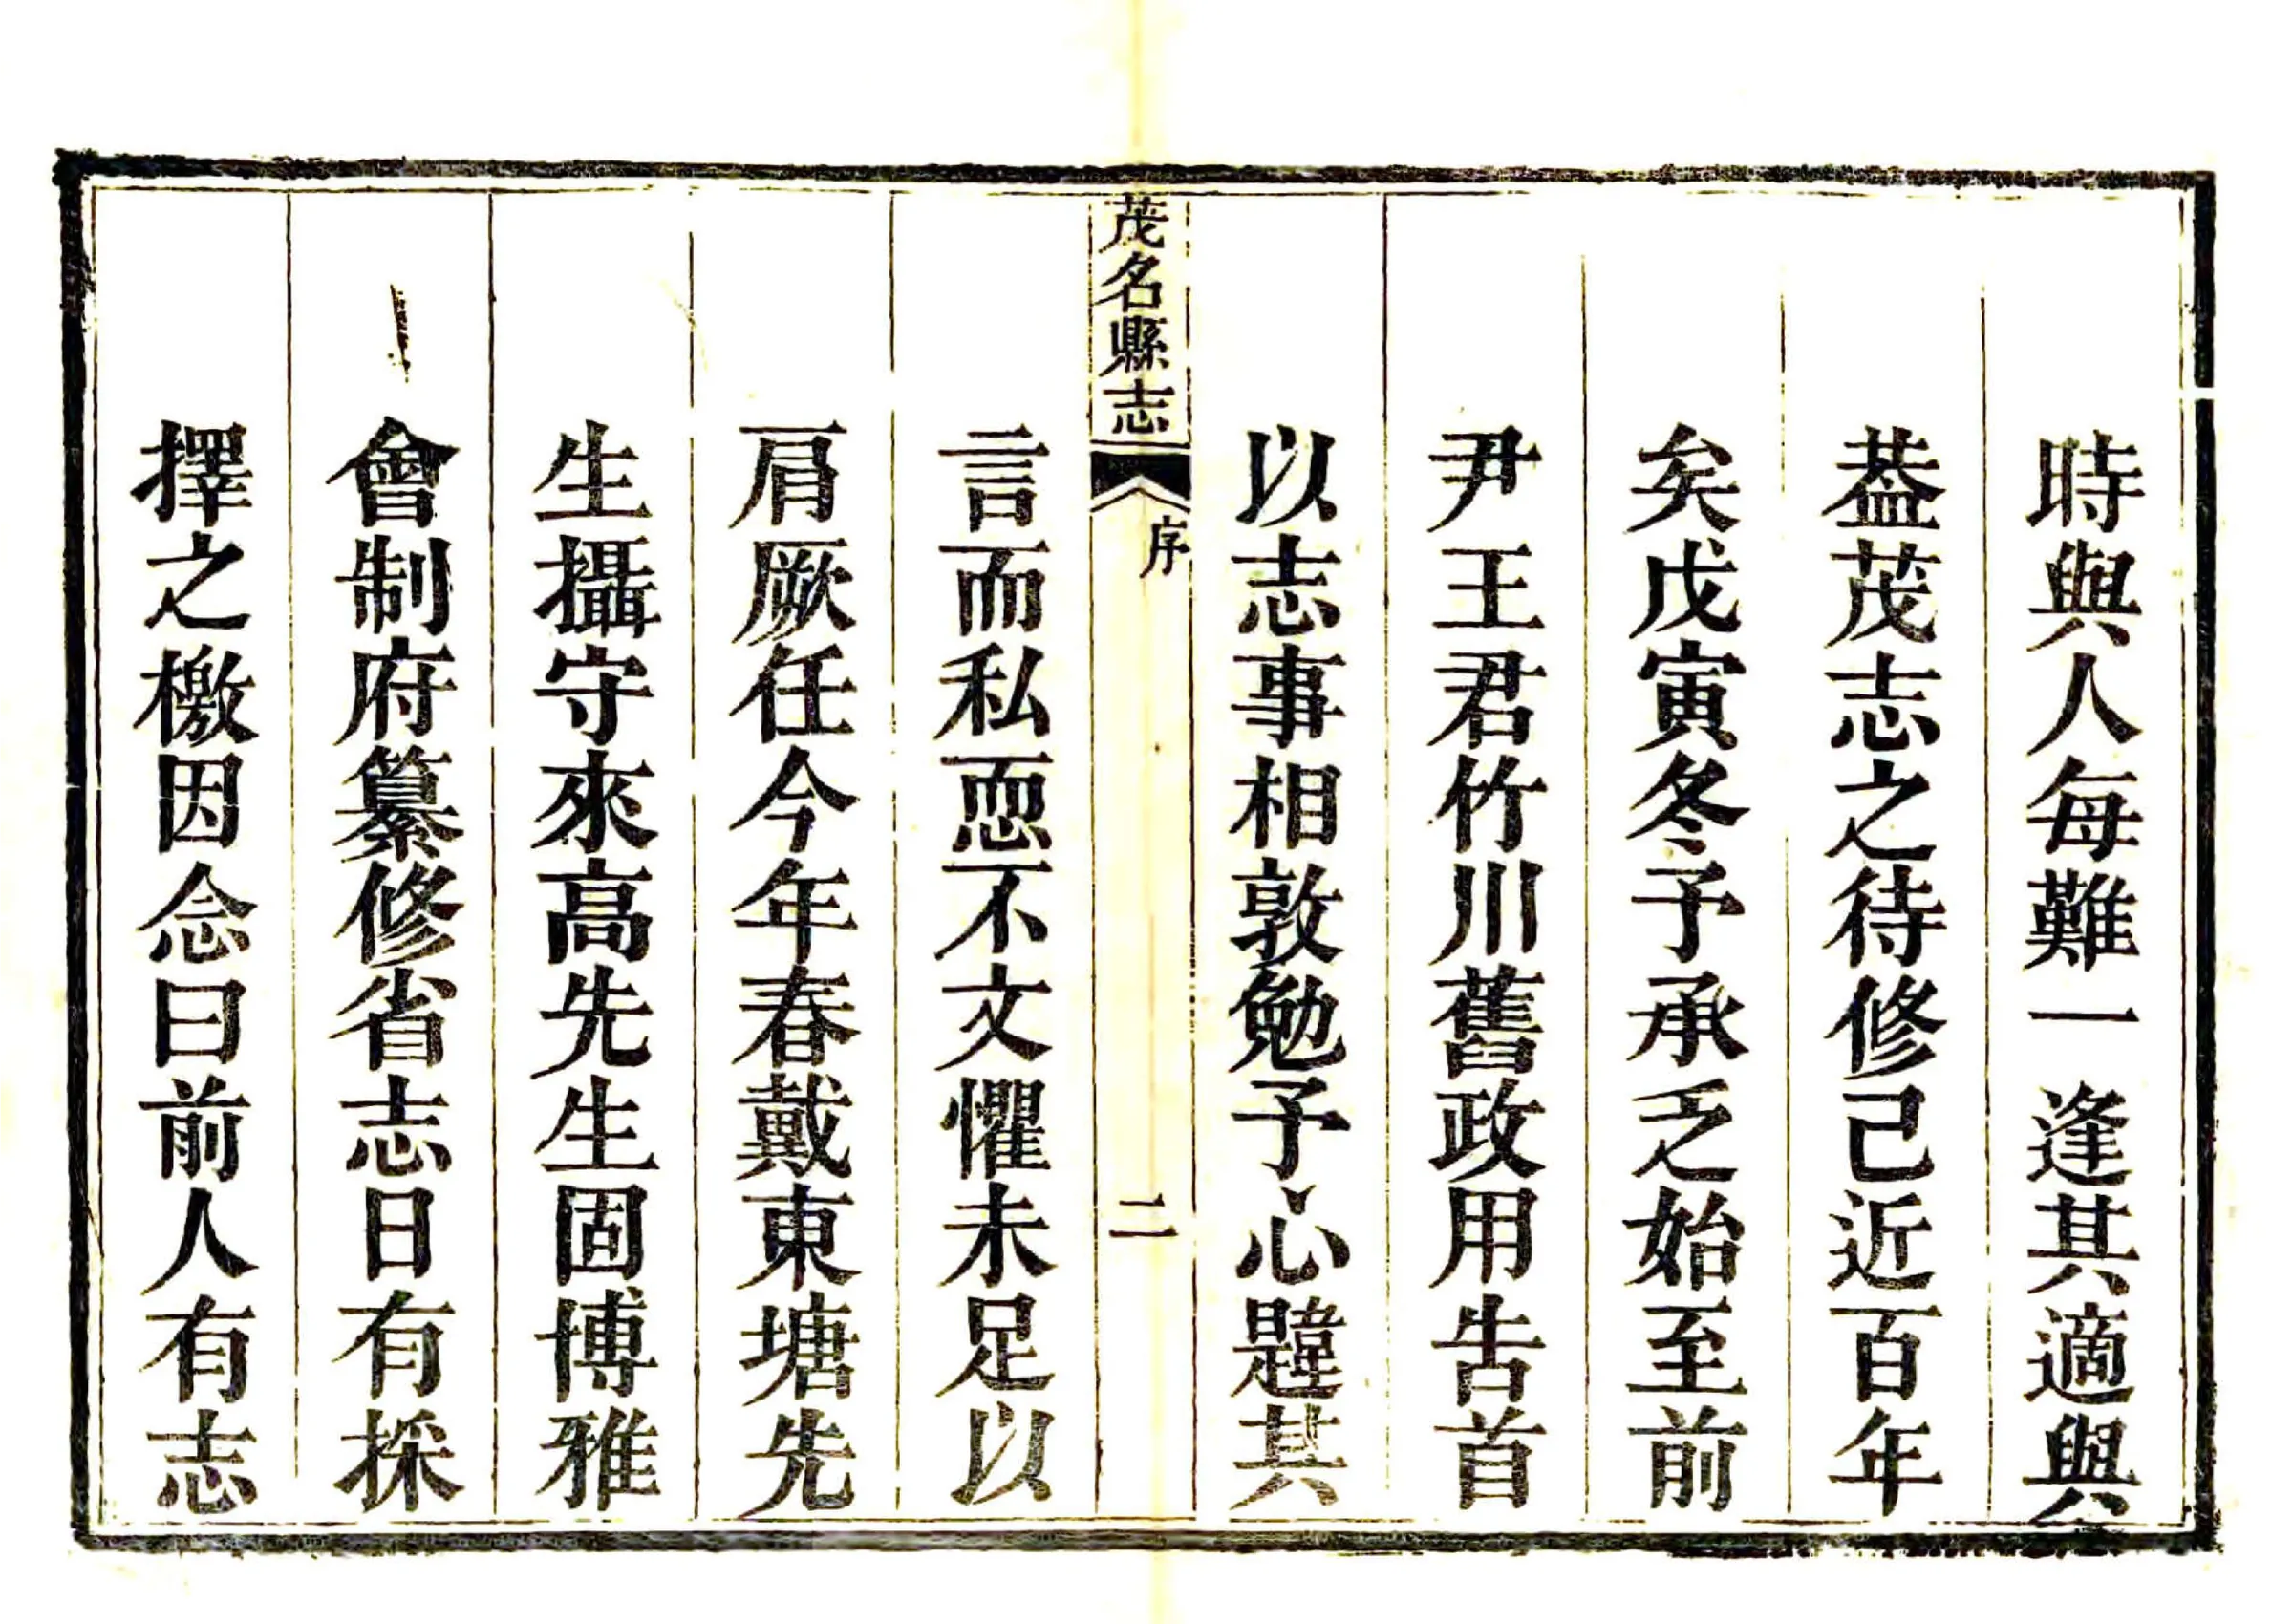 時與人每難一逢其適與
葢茂志之待修已近百年
矣戊寅冬予承乏始至前
尹王君竹川舊政用告首
以志事相敦勉予心韙其
茂名縣志
序
二
言而私恧不文懼未足以
肩厥任今年春戴東塘先
生攝守來高先生固博雅
會制府纂修省志日有採
擇之檄因念曰前人有志